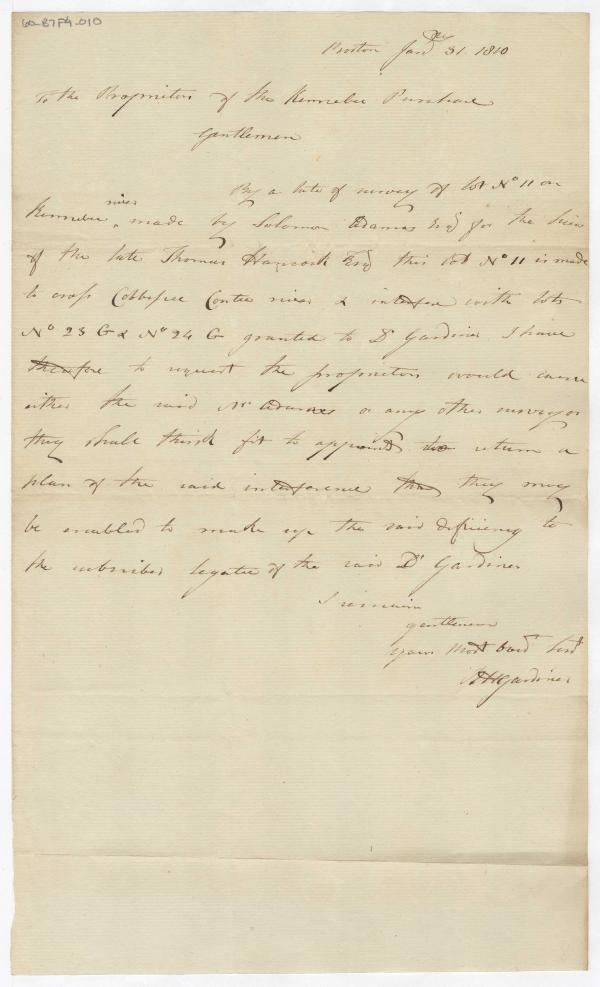 60-B7F4-010
Boston Jan^ry 31. 1810
To the Proprietors of the Kennebec Purchase
Gentlemen
By a late of survey of lot No 11 on
Kennebec river, made by Solomon Adams Esq for the heirs
of the late Thomas Hancock Esq this lot No 11 is made
to cross Cobbesee Contee river & interfere with lots
No 23 G & No 24 G granted to Dr Gardiner. I have
therefore to request the proprietors would cause
either the said Mr Adams or any other surveyor
they shall think fit to appoint to return a
plan of the said interference that they may
be enabled to make up the said deficiency to
the subscriber legatee of the said Dr Gardiner
I remain
gentlemen
Your Most Obed^t Serv^t
RHGardiner